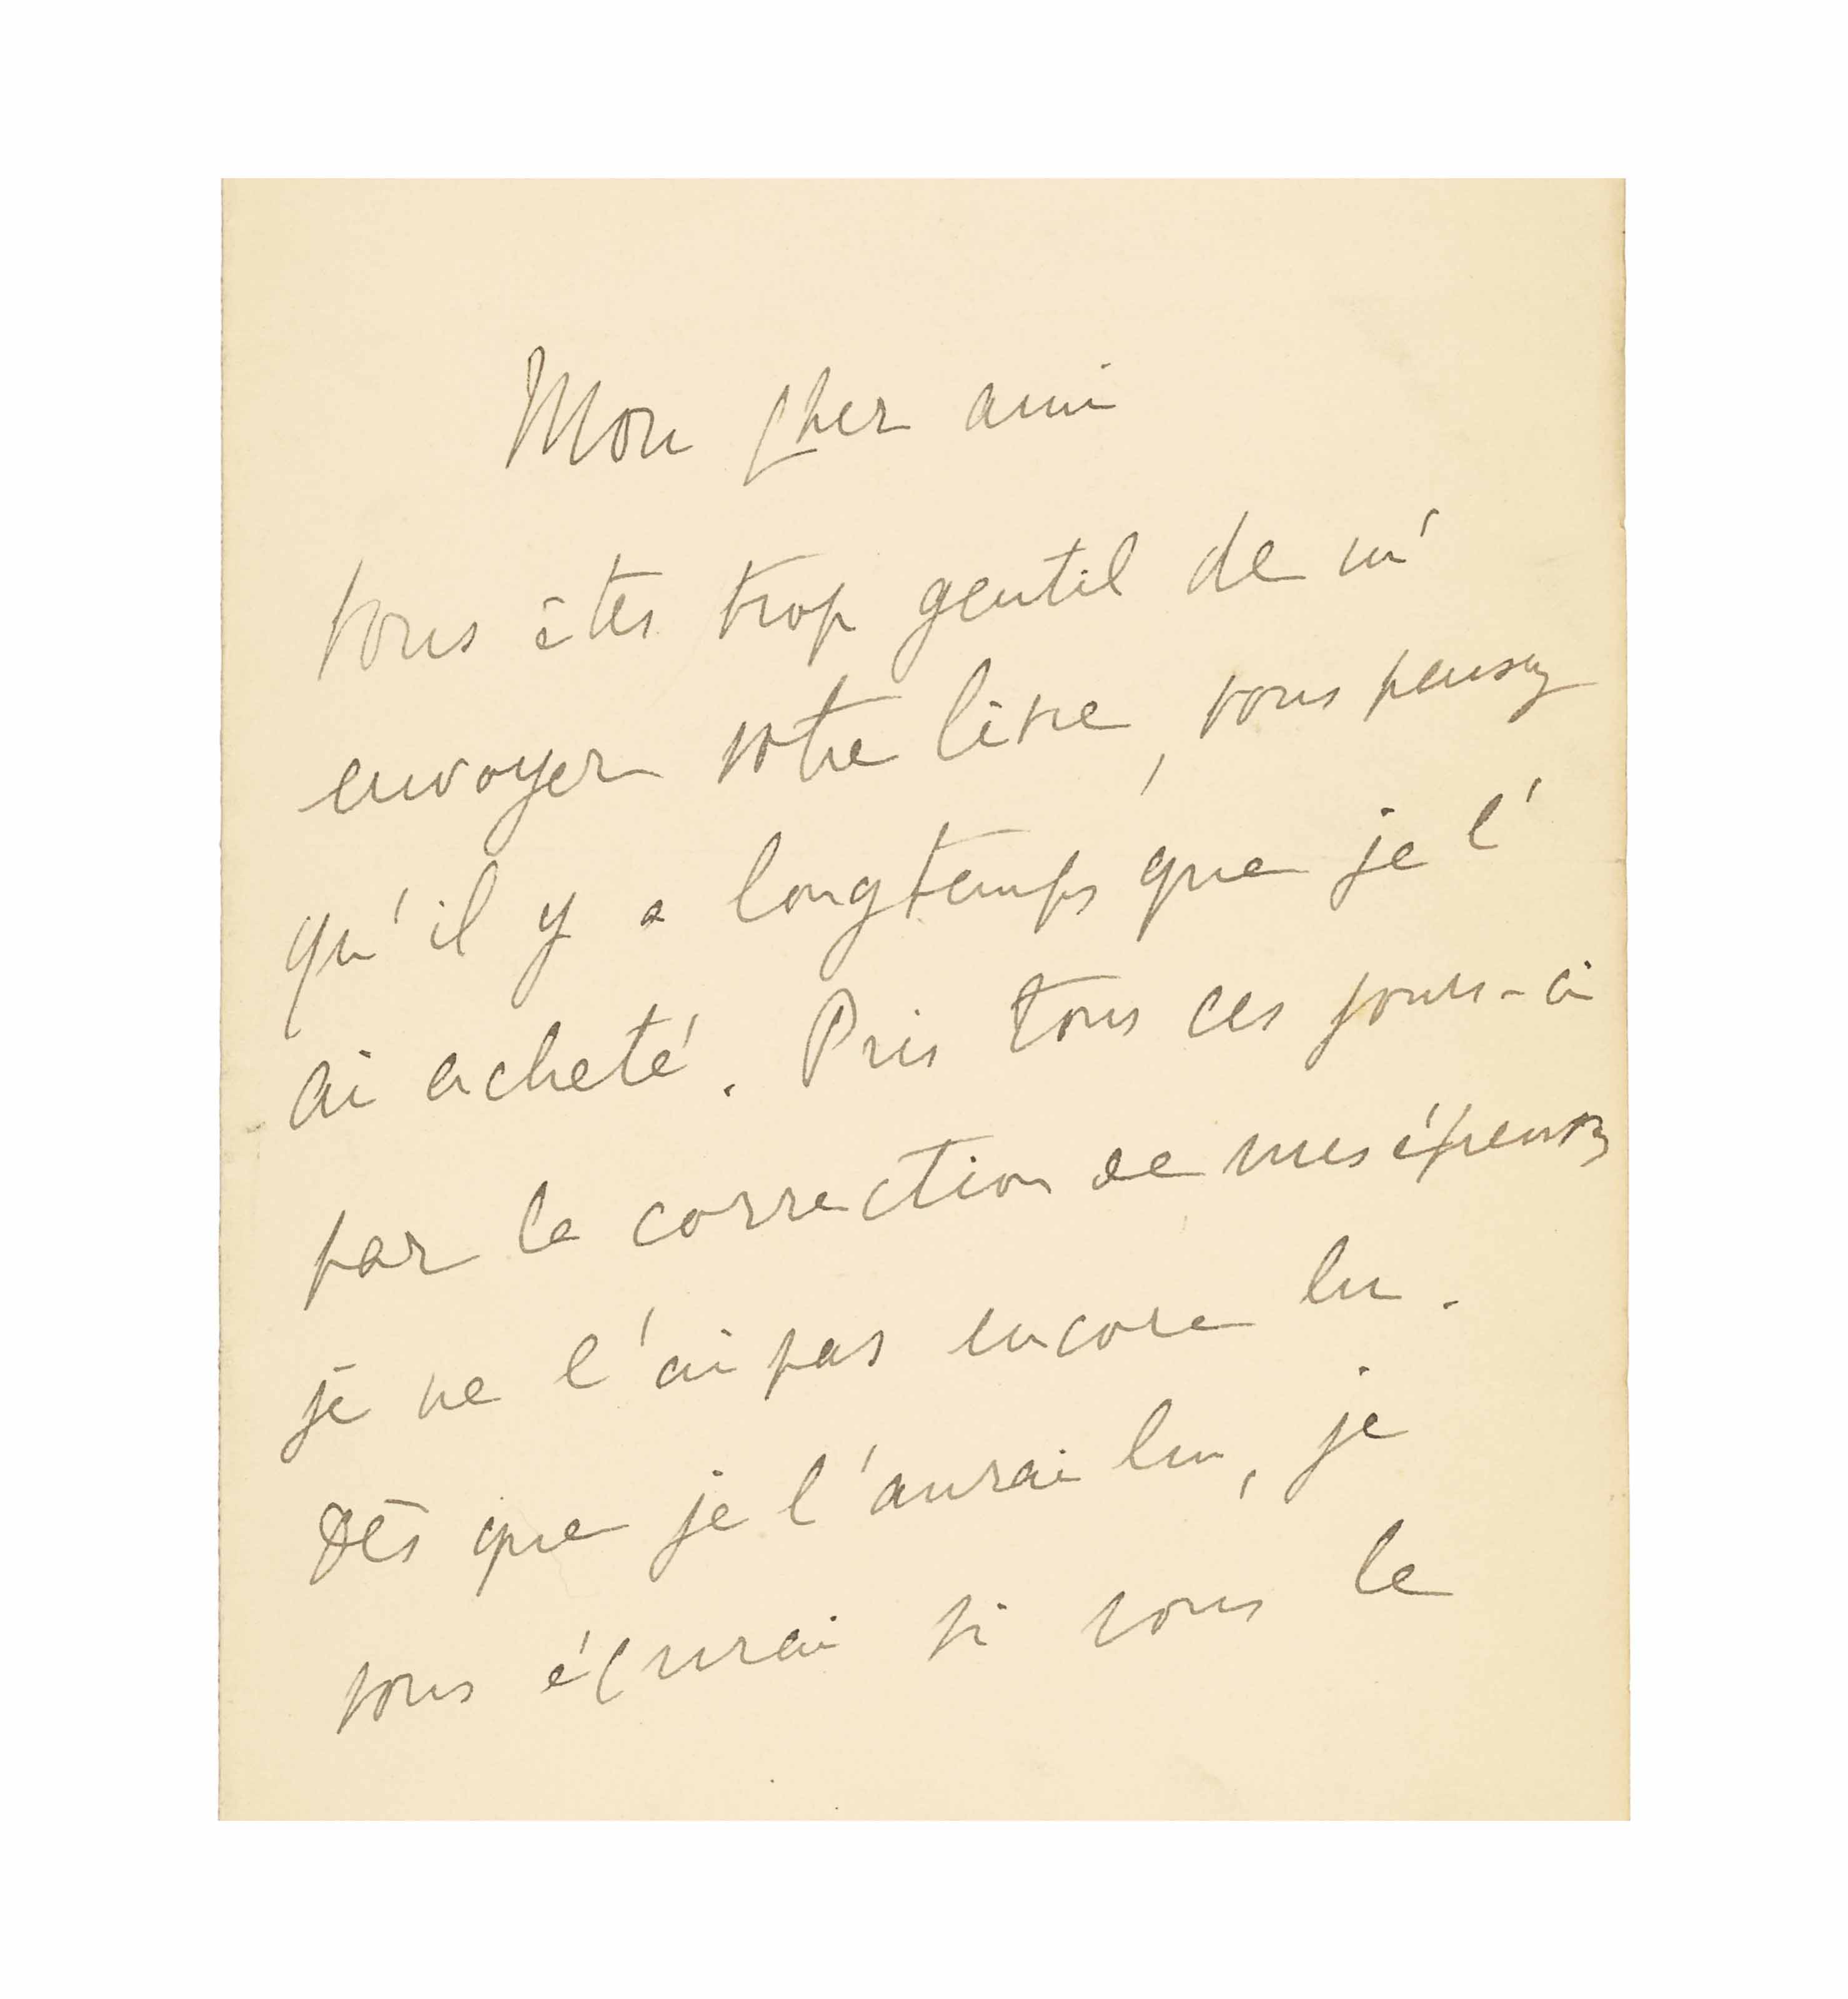 Mon cher ami
Vous êtes trop gentil de m'
envoyer votre livre, vous pensez
qu'il y a longtemps que je l'
ai acheté. Pris tous ces jours-ci
par la correction de mes épreuves
je ne l'ai pas encore lu.
Dès que je l'aurai lu, je
vous écrirai si vous le